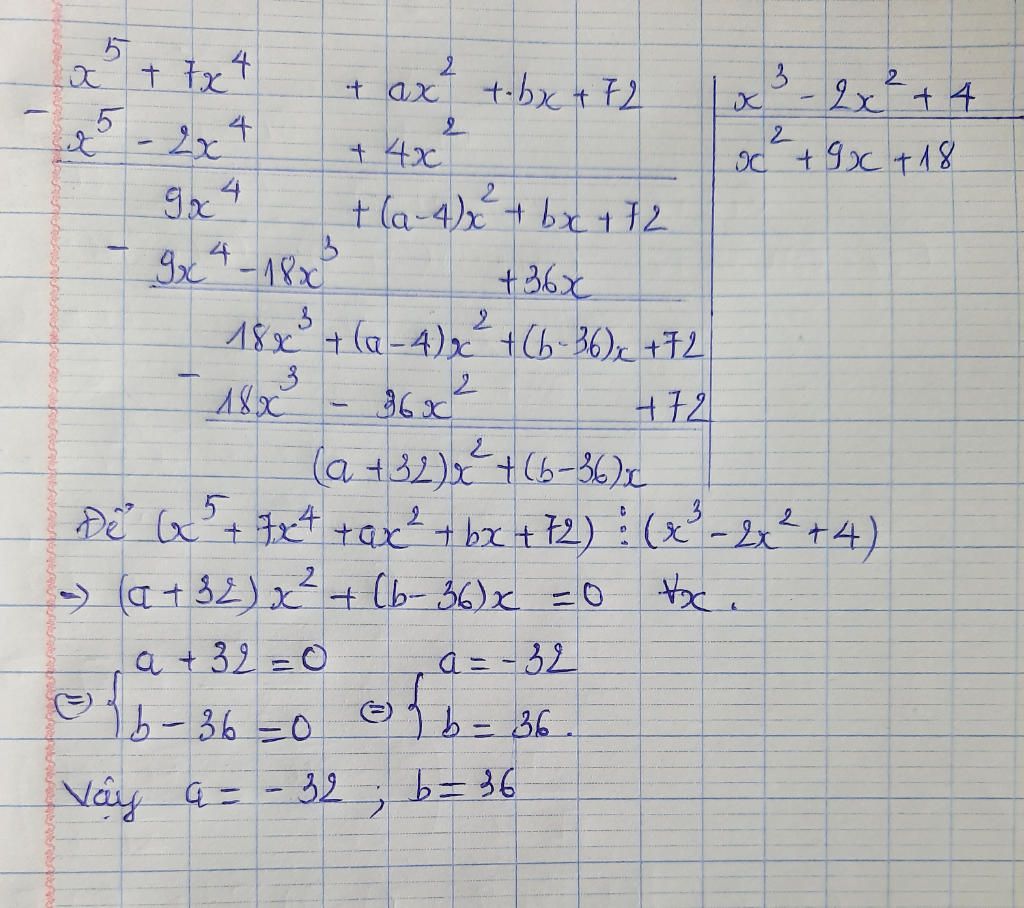 x⁵ + 7x⁴ + ax² + bx + 72 | x³ - 2x² + 4
- x⁵ - 2x⁴ + 4x² | x² + 9x + 18
9x⁴ + (a-4)x² + bx + 72
- 9x⁴ - 18x³ + 36x
18x³ + (a-4)x² + (b-36)x + 72
- 18x³ - 36x² + 72
(a+32)x² + (b-36)x
Để (x⁵ + 7x⁴ + ax² + bx + 72) ⋮ (x³ - 2x² + 4)
→ (a+32)x² + (b-36)x = 0 ∀x.
a + 32 = 0 a = -32
⇔ { b - 36 = 0 ⇔ { b = 36.
Vậy a = -32 ; b = 36